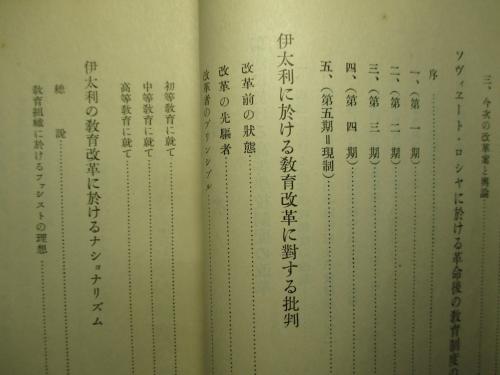 三、今次の改革案と輿論
ソヴィエート・ロシヤに於ける革命後の教育制度の
序
一、(第一期)
二、(第二期)
三、(第三期)
四、(第四期)
五、(第五期=現制)
伊太利に於ける教育改革に對する批判
改革前の狀態
改革の先驅者
改革者のプリンシプル
初等教育に就て
中等教育に就て
高等教育に就て
伊太利の教育改革に於けるナショナリズム
總說
教育組織に於けるファシストの理想